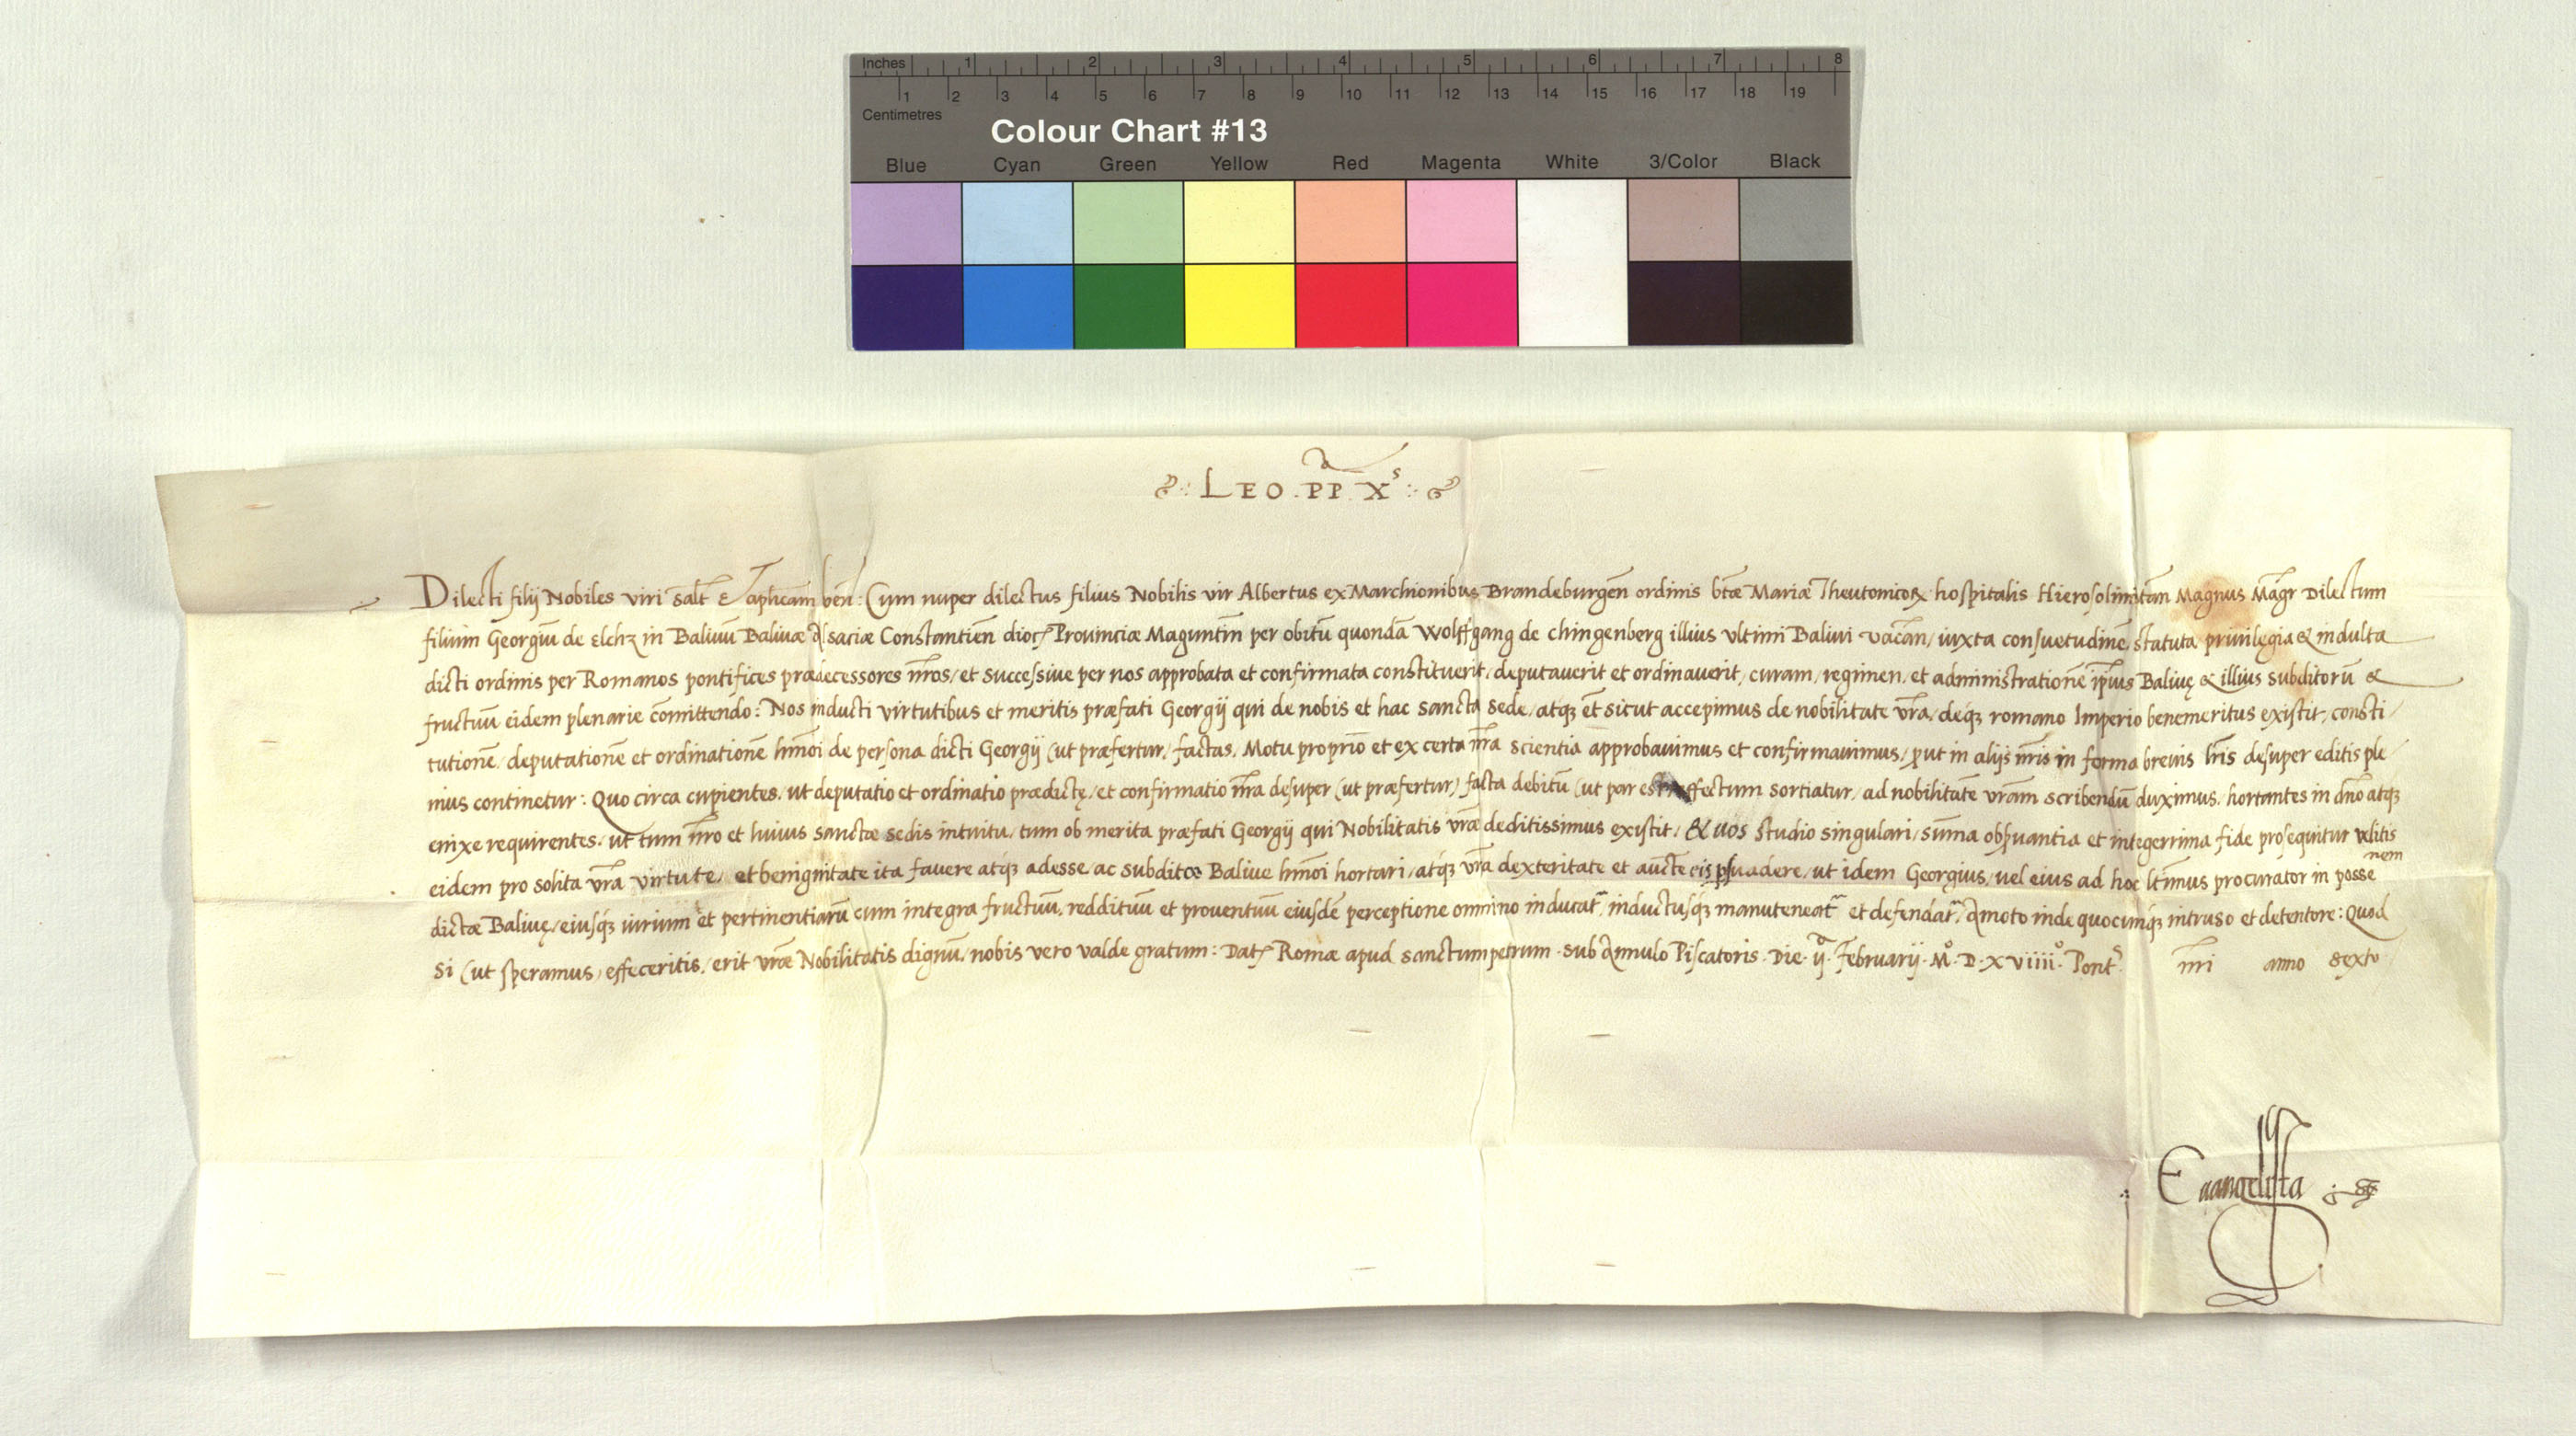 Inches 1 2 3 4 5 6 7 8
1 2 3 4 5 6 7 8 9 10 11 12 13 14 15 16 17 18 19
Centimetres
Colour Chart #13
Blue Cyan Green Yellow Red Magenta White 3/Color Black
LEO . PP . Xˢ
Dilecti filij Nobiles viri salt̄ & aplīcam ben̄: Cum nuper dilectus filius Nobilis vir Albertus ex Marchionibus Brandeburgen̄ ordinis btǣ Mariæ Theutonicoꝝ hospitalis Hierosolimitan̄ Magnus Magr̄ Dilectum
filium Georgiū de Elchz in Baliuū Baliuæ Alsaciæ Constantien̄ dioc̄ Prouinciæ Maguntin̄ per obitū quondā Wolffgang de chingenberg illius vltimi Baliui vacan̄, iuxta consuetudinē, statuta priuilegia & indulta
dicti ordinis per Romanos pontifices prædecessores nr̄os, et successiue per nos approbata et confirmata constituerit, deputauerit et ordinauerit, curam, regimen, et administrationē ip̄ius Baliuę & illius subditorū &
fructuū eidem plenarie com̄ittendo: Nos inducti virtutibus et meritis præfati Georgij qui de nobis et hac sancta sede, atqꝫ et̄ sicut accepimus de nobilitate vr̄a, deqꝫ romano Imperio benemeritus existit, consti/
tutionē, deputationē et ordinationē hmōi de persona dicti Georgij (ut præfertur, factas, Motu proprio et ex certa nr̄a scientia approbauimus et confirmauimus, ꝓut in alijs nr̄is in forma breuis lr̄is desuper editis ple/
nius continetur: Quo circa cupientes, ut deputatio et ordinatio prædictę, et confirmatio nr̄a desuper (ut præfertur) facta debitū (ut par est, effectum sortiatur, ad nobilitatē vr̄am scribendū duximus, hortantes in dn̄o atqꝫ
enixe requirentes, ut tum nr̄o et huius sanctæ sedis intuitu, tum ob merita præfati Georgij qui Nobilitatis vr̄æ deditissimus existit, & uos studio singulari, sum̄a obseruantia et integerrima fide prosequitur velitis
eidem pro solita vr̄a virtute, et benignitate ita fauere atqꝫ adesse, ac subditos Baliue hmōi hortari, atqꝫ vr̄a dexteritate et aucte eis ꝑsuadere, ut idem Georgius, uel eius ad hoc ltīmus procurator in possenem
dictæ Baliuę, eiusqꝫ iurium et pertinentiarū cum integra fructuū, reddituū et prouentuū eiusdē perceptione omnino inducat̄, inductusqꝫ manuteneat̄ et defendat̄, Amoto inde quocunqꝫ intruso et detentore: Quod
si (ut speramus, effeceritis, erit vr̄æ Nobilitatis dignū, nobis vero valde gratum: Dat̄ Romæ apud sanctum petrum sub Annulo Piscatoris. Die. ijᵃ. Februarij. M°. D. XVIIII°. Pontˢ. nr̄i anno sexto
Euangelista